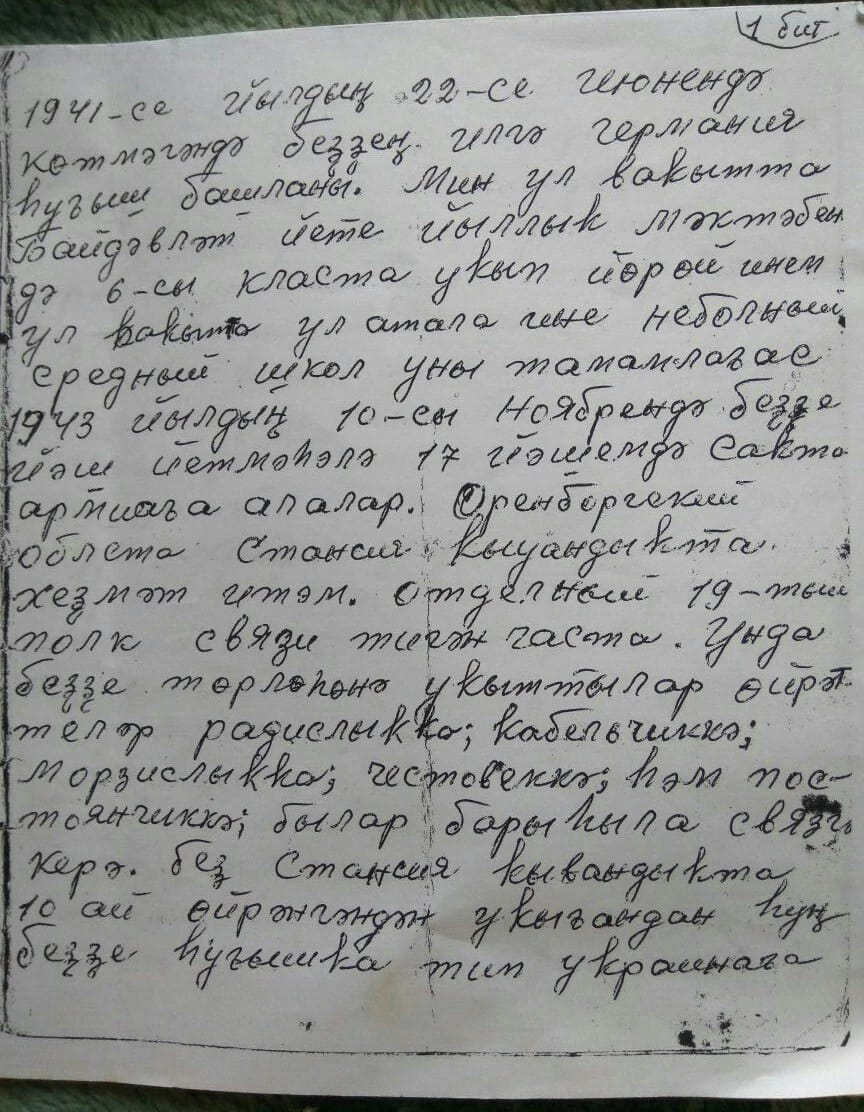 1 бит
1941-се йылдың 22-се июнендә
көтмәгәндә беҙҙең илгә германия
һуғыш башланы. Мин ул вакытта
Байдәвләт йете йыллык мәктәбен
дә 6-сы класта укып йөрөй инем
ул вакытта ул атала ине неболный
средный школ уны тамамлағас
1943 йылдың 10-сы Ноябрендә беҙҙе
йәш йетмәһәлә 17 йәшемдә сакта
армиаға алалар. Оренборгский
облста Стансия кыуандыкта.
хеҙмәт итәм. Отделный 19-тый
полк связи тигән часта. Унда
беҙҙе төрлөһөнә укыттылар өйрәт
теләр радислыкка; кабельчиккә;
Морзислыкка; честовеккә; һәм пос-
тоянчиккә; былар барыһыла связгә
керә. беҙ Стансия кывандыкта
10 ай өйрәнгәндән укығандан һуң
беҙҙе һуғышка тип украинаға